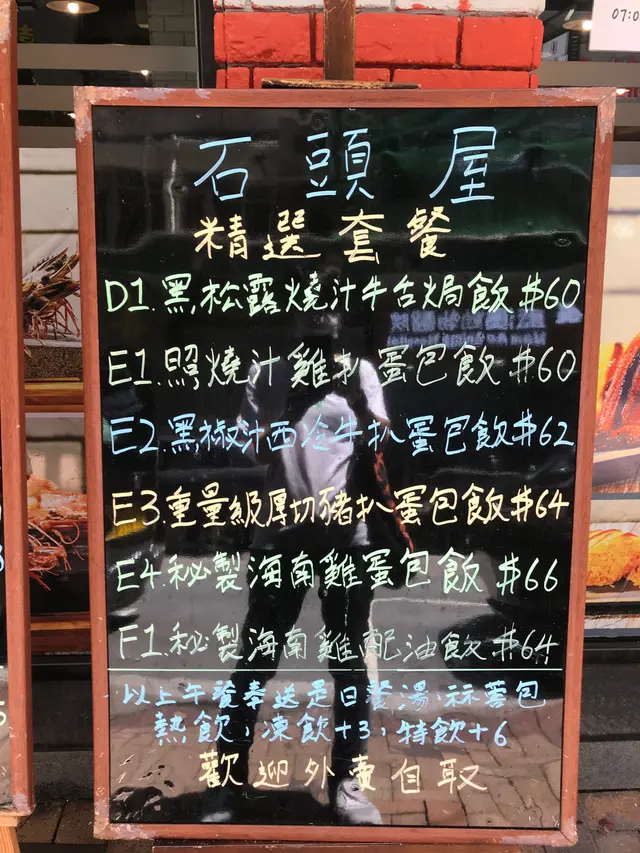 07:0
石頭屋
精選套餐
D1.黑松露燒汁牛舌焗飯 $60
E1.照燒汁雞扒蛋包飯 $60
E2.黑椒汁西冷牛扒蛋包飯 $62
E3.重量級厚切豬扒蛋包飯 $64
E4秘製海南雞蛋包飯 $66
F1.秘製海南雞配油飯 $64
以上午餐奉送是日餐湯,蒜蓉包
熱飲,凍飲+3,特飲+6
歡迎外賣自取